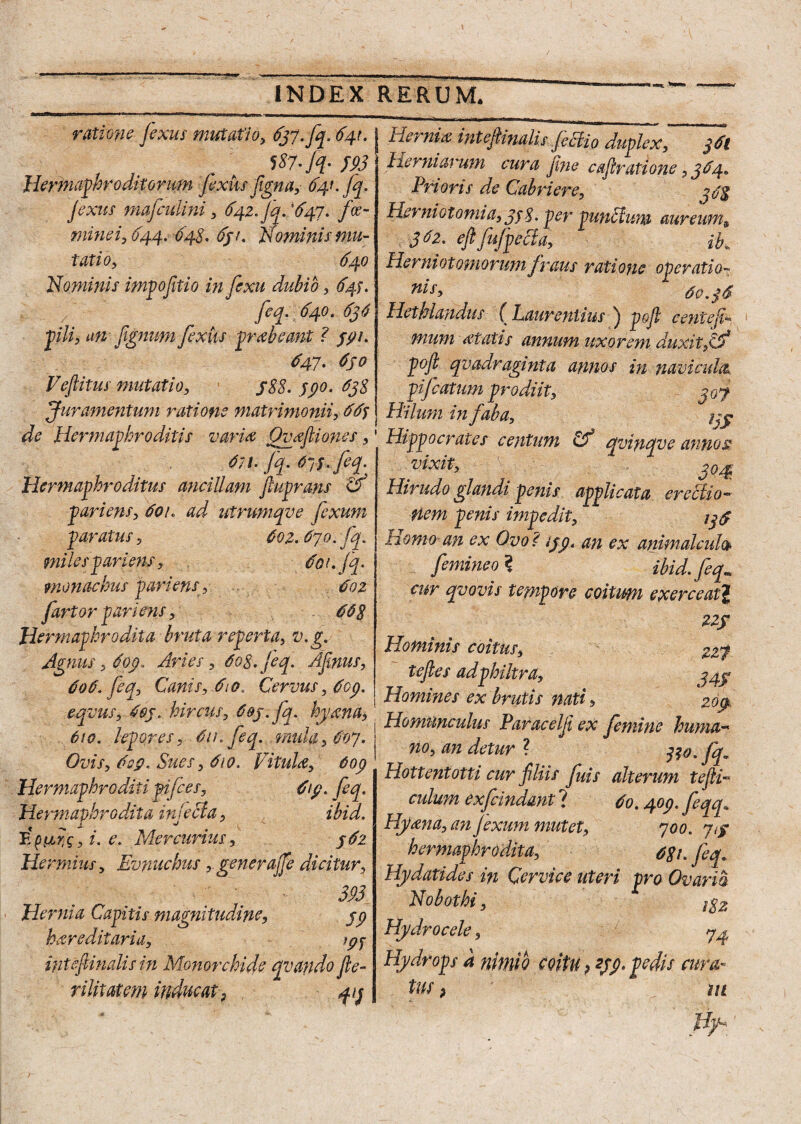 INDEX RERUM.
ratione ſexus mutatio, 637. ſq. 641.
587. ſq. 593
Hermaphroditorum ſexûs ſigna, 641. ſq.
ſexus maſculini, 642. ſq. 647. fœ-
minei, 644. 648. 651. Nominis mu-
tatio, 640
Nominis impoſitio in ſexu dubio, 645.
ſeq. 640. 636
pili, an ſignum ſexûs præbeant ? 591.
647. 650
Veſtitus mutatio, 588. 590. 638
Juramentum ratione matrimonii, 665
de Hermaphroditis variæ Qvæſtiones,
671. ſq. 675. ſeq.
Hermaphroditus ancillam ſtuprans &
pariens, 601. ad utrumqve ſexum
paratus, 602. 670. ſq.
miles pariens, 601. ſq.
monachus pariens, 602
ſartor pariens, 668
Hermaphrodita bruta reperta, v. g.
Agnus, 609. Aries, 608. ſeq. Aſinus,
606. ſeq, Canis, 610. Cervus, 609.
eqvus, 605. hircus, 605. ſq. hyæna,
610. lepores, 611. ſeq. mula, 607.
Ovis, 609. Sues, 610. Vitulæ, 609
Hermaphroditi piſces, 619. ſeq.
Hermaphrodita inſecta, ibid.
Ἑρμῆς, i. e. Mercurius, 562
Hermius, Evnuchus, generaſſe dicitur,
393
Hernia Capitis magnitudine, 59
hæreditaria, 195
inteſtinalis in Monorchide qvando ſte-
rilitatem inducat, 415
Herniæ inteſtinalis ſectio duplex, 361
Herniarum cura ſine caſtratione, 364.
Prioris de Cabriere, 368
Herniotomia, 358. per punctum aureum,
362. eſt ſuſpecta, ib.
Herniotomorum fraus ratione operatio-
nis, 60. 36
Hethlandus (Laurentius) poſt centeſi-
mum ætatis annum uxorem duxit, &
poſt qvadraginta annos in navicula
piſcatum prodiit, 307
Hilum in faba, 155
Hippocrates centum & qvinqve annos
vixit, 304
Hirudo glandi penis applicata erectio-
nem penis impedit, 136
Homo an ex Ovo? 159. an ex animalculo
femineo ? ibid. ſeq.
cur qvovis tempore coitum exerceat?
225
Hominis coitus, 227
teſtes ad philtra, 345
Homines ex brutis nati, 209
Homunculus Paracelſi ex ſemine huma-
no, an detur ? 330. ſq.
Hottentotti cur filiis ſuis alterum teſti-
culum exſcindant ? 60. 409. ſeqq.
Hyæna, an ſexum mutet, 700. 715
hermaphrodita, 681. ſeq.
Hydatides in Cervice uteri pro Ovariô
Nobothi, 182
Hydrocele, 74
Hydrops à nimiô coitu, 259. pedis cura-
tus, 111
Hy-